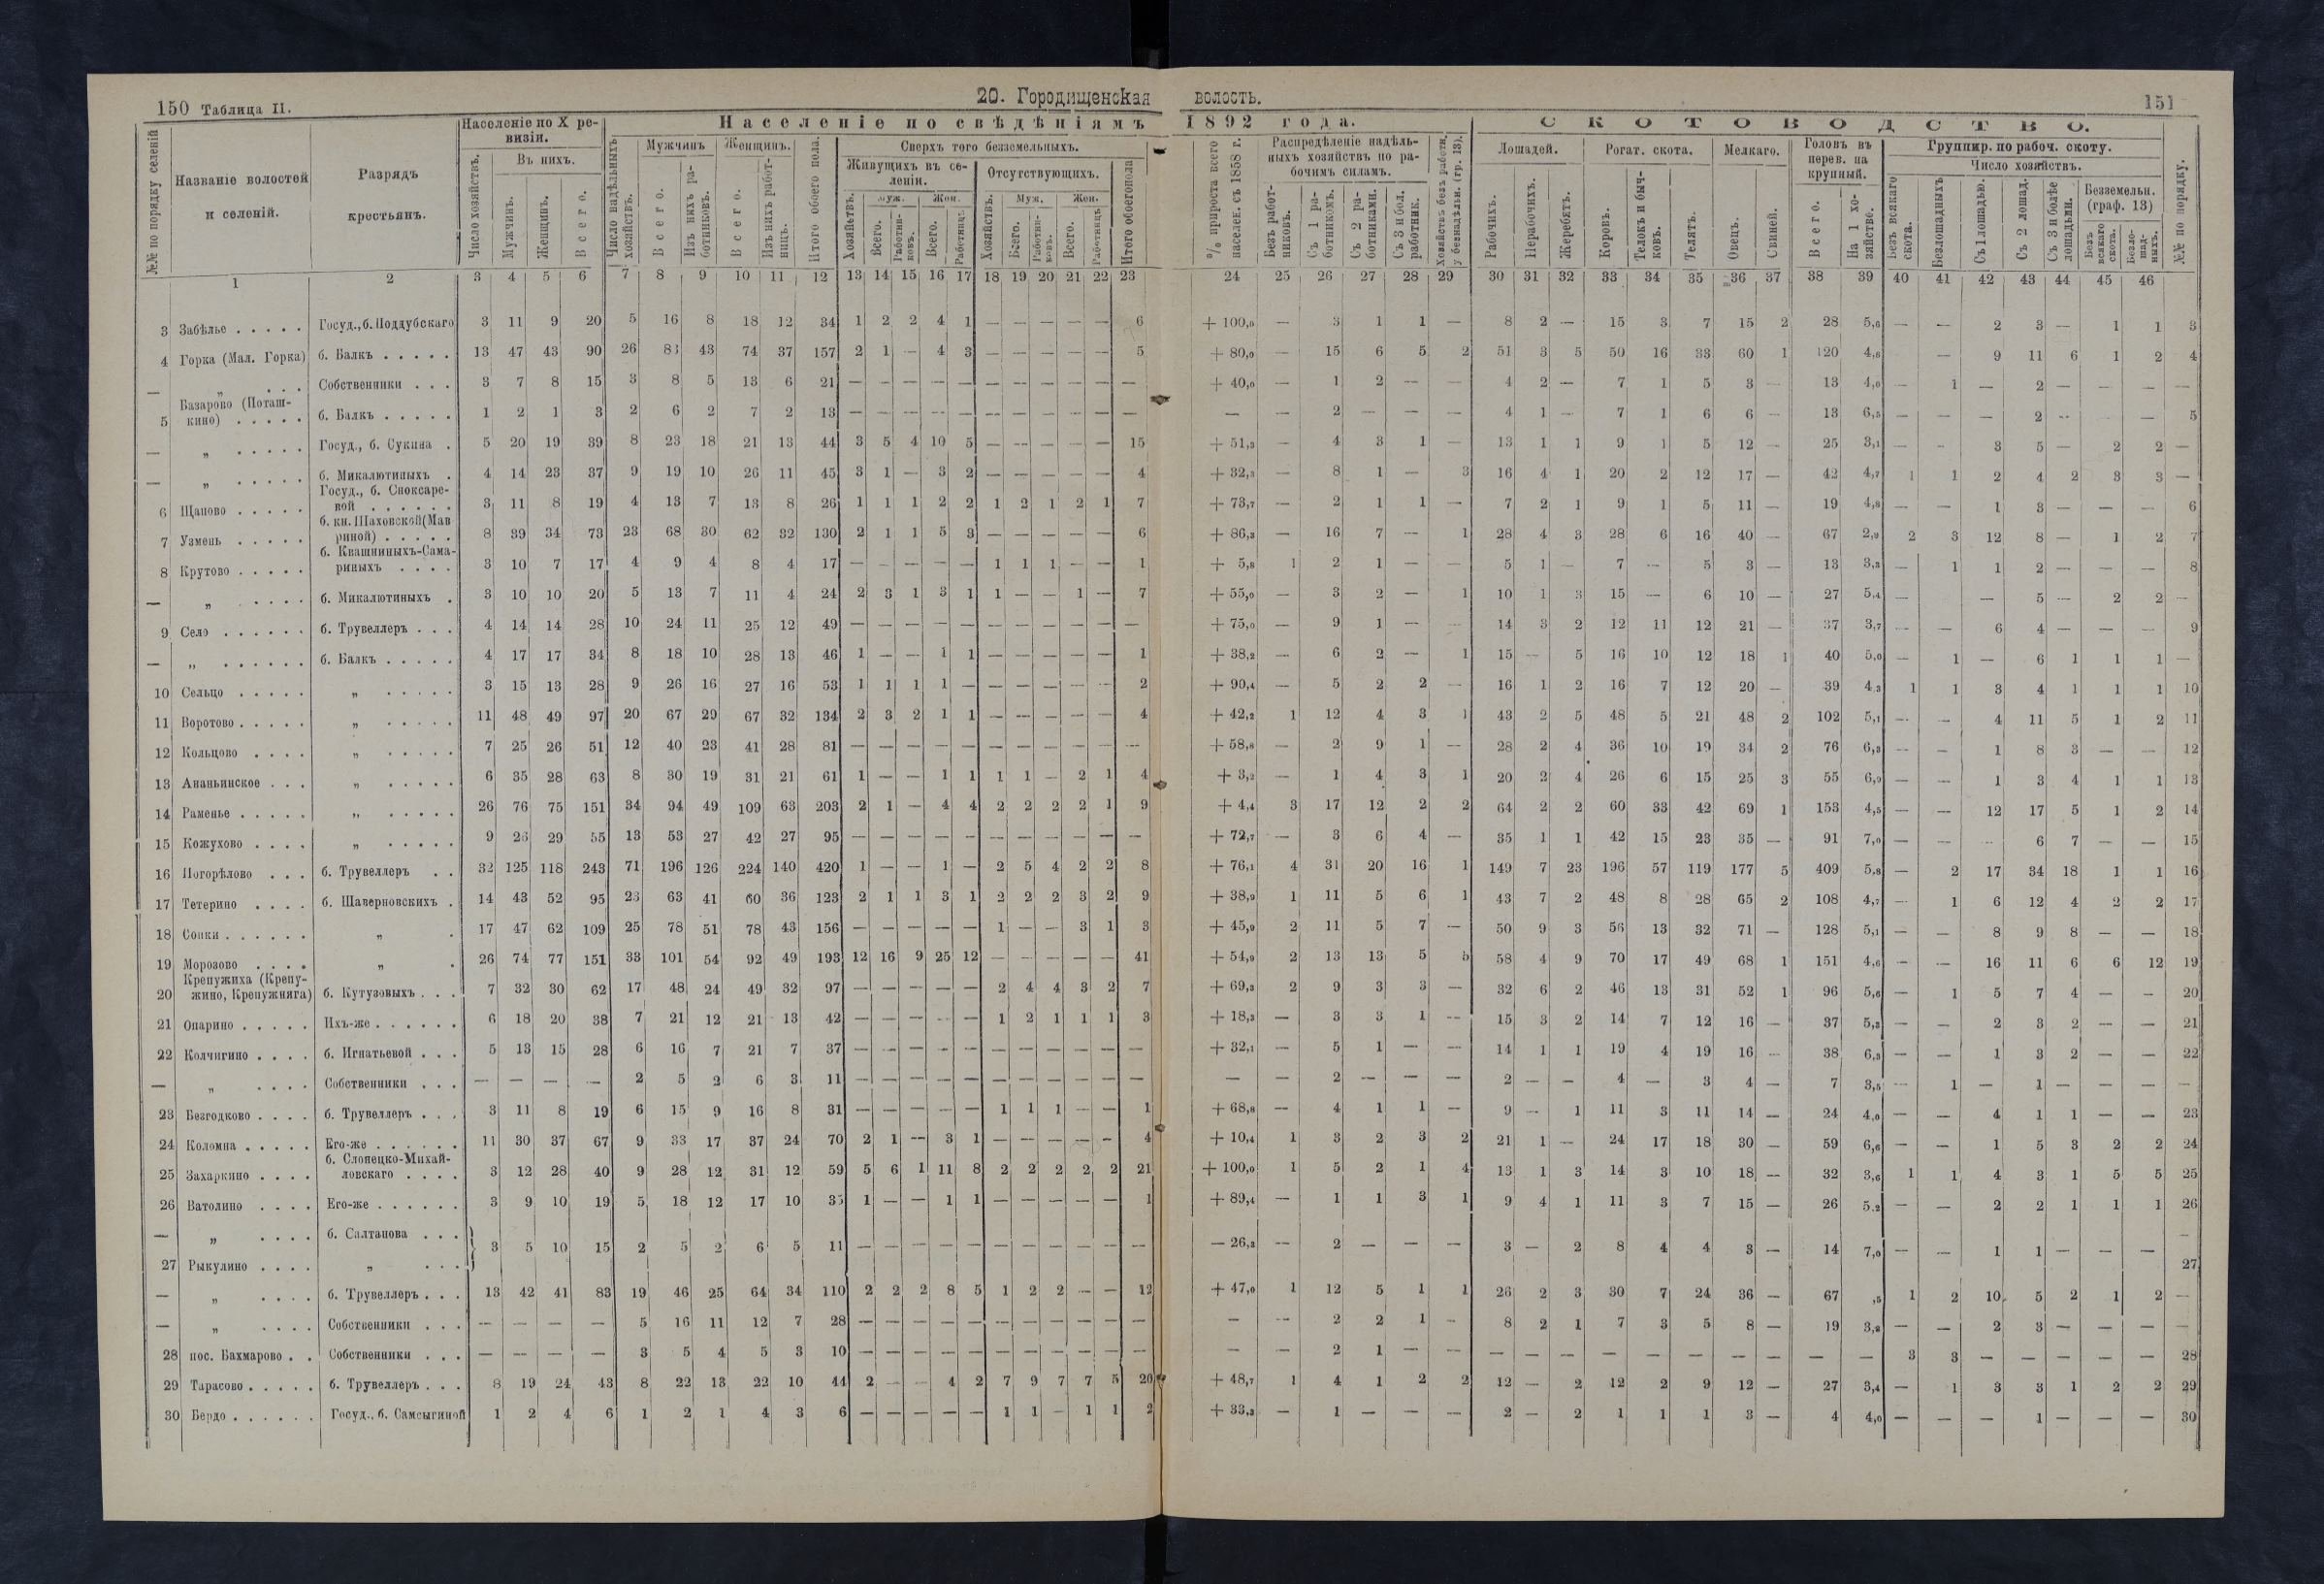 150 Таблица II.
20. Городищенская волость.
151
№№ по порядку селеній
Названіе волостей и селеній.
Разрядъ крестьянъ.
Населеніе по X ревизіи.
Число хозяйствъ.
Въ нихъ.
Мужчинъ.
Женщинъ.
Всего.
Населеніе по свѣдѣніямъ 1892 года.
Число надѣльныхъ хозяйствъ.
Мужчинъ
Всего.
Изъ нихъ работниковъ.
Женщинъ.
Всего.
Изъ нихъ работницъ.
Итого обоего пола.
Сверхъ того безземельныхъ.
Живущихъ въ селеніи.
Отсутствующихъ.
Итого обоего пола
% прироста всего населен. съ 1858 г.
Распредѣленіе надѣльныхъ хозяйствъ по рабочимъ силамъ.
Безъ работниковъ.
Съ 1 работникомъ.
Съ 2 работниками.
Съ 3 и бол. работник.
Хозяйствъ безъ работн. у безнадѣльн. (гр. 13).
СКОТОВОДСТВО.
Лошадей.
Рабочихъ.
Нерабочихъ.
Жеребятъ.
Рогат. скота.
Коровъ.
Телокъ и бычковъ.
Телятъ.
Мелкаго.
Овецъ.
Свиней.
Головъ въ перев. на крупный.
Всего.
На 1 хозяйство.
Группир. по рабоч. скоту.
Число хозяйствъ.
Безъ всякаго скота.
Безлошадныхъ
Съ 1 лошадью.
Съ 2 лошад.
Съ 3 и болѣе лошадьми.
Безземельн. (граф. 13)
Безъ всякаго скота.
Безлошадныхъ.
№№ по порядку.
1 2 3 4 5 6 7 8 9 10 11 12 13 14 15 16 17 18 19 20 21 22 23 24 25 26 27 28 29 30 31 32 33 34 35 36 37 38 39 40 41 42 43 44 45 46
3 Забѣлье . . . . . Госуд., б. Поддубскаго 3 11 9 20 5 16 8 18 12 34 1 2 2 4 1 — — — — — 6 + 100,0 — 3 1 1 — 8 2 — 15 3 7 15 2 28 5,6 — — 2 3 — 1 1 3
4 Горка (Мал. Горка) б. Балкъ . . . . . 13 47 43 90 26 83 43 74 37 157 2 1 — 4 3 — — — — — 5 + 80,0 — 15 6 5 2 51 3 5 50 16 33 60 1 120 4,6 — 9 11 6 1 2 4
— „ . . . Собственники . . . 3 7 8 15 3 8 5 13 6 21 — — — — — — — — — — — + 40,0 — 1 2 — — 4 2 — 7 1 5 3 — 13 4,0 — 1 — 2 — — — —
5 Базарово (Поташкино) . . . . . б. Балкъ . . . . . 1 2 1 3 2 6 2 7 2 13 — — — — — — — — — — — — — 2 — — — 4 1 — 7 1 6 6 — 13 6,5 — — — 2 — — — 5
— „ . . . . . Госуд., б. Сукина . 5 20 19 39 8 23 18 21 13 44 3 5 4 10 5 — — — — — 15 + 51,3 — 4 3 1 — 13 1 1 9 1 5 12 — 25 3,1 — — 3 5 — 2 2 —
— „ . . . . . б. Микалютиныхъ . 4 14 23 37 9 19 10 26 11 45 3 1 — 3 2 — — — — — 4 + 32,3 — 8 1 — 3 16 4 1 20 2 12 17 — 42 4,7 1 1 2 4 2 3 3 —
6 Щапово . . . . . Госуд., б. Сноксаревой . . . . . . 3 11 8 19 4 13 7 13 8 26 1 1 1 2 2 1 2 1 2 1 7 + 73,7 — 2 1 1 — 7 2 1 9 1 5 11 — 19 4,8 — — 1 3 — — — 6
7 Узмень . . . . . б. кн. Шаховской (Мавриной) . . . . . 8 39 34 73 23 68 30 62 32 130 2 1 1 5 3 — — — — — 6 + 86,3 — 16 7 — 1 28 4 3 28 6 16 40 — 67 2,9 2 3 12 8 — 1 2 7
8 Крутово . . . . . б. Квашниныхъ-Самариныхъ . . . . 3 10 7 17 4 9 4 8 4 17 — — — — — 1 1 1 — — 1 + 5,8 1 2 1 — — 5 1 — 7 — 5 3 — 13 3,3 — 1 1 2 — — — 8
— „ . . . . б. Микалютиныхъ . 3 10 10 20 5 13 7 11 4 24 2 3 1 3 1 1 — — 1 — 7 + 55,0 — 3 2 — 1 10 1 3 15 — 6 10 — 27 5,4 — — 5 — 2 2 —
9 Село . . . . . . б. Трувеллеръ . . . 4 14 14 28 10 24 11 25 12 49 — — — — — — — — — — — + 75,0 — 9 1 — — 14 3 2 12 11 12 21 — 37 3,7 — — 6 4 — — — 9
— „ . . . . . . б. Балкъ . . . . . 4 17 17 34 8 18 10 28 13 46 1 — — 1 1 — — — — — 1 + 38,2 — 6 2 — 1 15 — 5 16 10 12 18 1 40 5,0 — 1 — 6 1 1 1 —
10 Сельцо . . . . . „ . . . . . 3 15 13 28 9 26 16 27 16 53 1 1 1 1 — — — — — — 2 + 90,4 — 5 2 2 — 16 1 2 16 7 12 20 — 39 4,3 1 1 3 4 1 1 1 10
11 Воротово . . . . . „ . . . . . 11 48 49 97 20 67 29 67 32 134 2 3 2 1 1 — — — — — 4 + 42,2 1 12 4 3 1 43 2 5 48 5 21 48 2 102 5,1 — — 4 11 5 1 2 11
12 Кольцово . . . . „ . . . . . 7 25 26 51 12 40 23 41 28 81 — — — — — — — — — — — + 58,8 — 2 9 1 — 28 2 4 36 10 19 34 2 76 6,3 — — 1 8 3 — — 12
13 Ананьинское . . . „ . . . . . 6 35 28 63 8 30 19 31 21 61 1 — — 1 1 1 1 — 2 1 4 + 3,2 — 1 4 3 1 20 2 4 26 6 15 25 3 55 6,9 — — 1 3 4 1 1 13
14 Раменье . . . . . „ . . . . . 26 76 75 151 34 94 49 109 63 203 2 1 — 4 4 2 2 2 2 1 9 + 4,4 3 17 12 2 2 64 2 2 60 33 42 69 1 153 4,5 — — 12 17 5 1 2 14
15 Кожухово . . . . „ . . . . . 9 26 29 55 13 53 27 42 27 95 — — — — — — — — — — — + 72,7 — 3 6 4 — 35 1 1 42 15 23 35 — 91 7,0 — — — 6 7 — — 15
16 Погорѣлово . . . б. Трувеллеръ . . 32 125 118 243 71 196 126 224 140 420 1 — — 1 — 2 5 4 2 2 8 + 76,1 4 31 20 16 1 149 7 23 196 57 119 177 5 409 5,8 — 2 17 34 18 1 1 16
17 Тетерино . . . . б. Шаверновскихъ . 14 43 52 95 23 63 41 60 36 123 2 1 1 3 1 2 2 2 3 2 9 + 38,9 1 11 5 6 1 43 7 2 48 8 28 65 2 108 4,7 — 1 6 12 4 2 2 17
18 Сопки . . . . . . „ . 17 47 62 109 25 78 51 78 43 156 — — — — — 1 — — 3 1 3 + 45,9 2 11 5 7 — 50 9 3 56 13 32 71 — 128 5,1 — — 8 9 8 — — 18
19 Морозово . . . . „ . 26 74 77 151 33 101 54 92 49 193 12 16 9 25 12 — — — — — 41 + 54,9 2 13 13 5 5 58 4 9 70 17 49 68 1 151 4,6 — — 16 11 6 6 12 19
20 Крепужиха (Крепужино, Крепужняга) б. Кутузовыхъ . . . 7 32 30 62 17 48 24 49 32 97 — — — — — 2 4 4 3 2 7 + 69,3 2 9 3 3 — 32 6 2 46 13 31 52 1 96 5,6 — 1 5 7 4 — — 20
21 Опарино . . . . . Ихъ-же . . . . . . 6 18 20 38 7 21 12 21 13 42 — — — — — 1 2 1 1 1 3 + 18,3 — 3 3 1 — 15 3 2 14 7 12 16 — 37 5,3 — — 2 3 2 — — 21
22 Колчигино . . . . б. Игнатьевой . . . 5 13 15 28 6 16 7 21 7 37 — — — — — — — — — — — + 32,1 — 5 1 — — 14 1 1 19 4 19 16 — 38 6,3 — — 1 3 2 — — 22
— „ . . . . Собственники . . . — — — — 2 5 2 6 3 11 — — — — — — — — — — — — — 2 — — — 2 — — 4 — 3 4 — 7 3,5 — 1 — 1 — — — —
23 Безгодково . . . . б. Трувеллеръ . . . 3 11 8 19 6 15 9 16 8 31 — — — — — 1 1 1 — — 1 + 68,8 — 4 1 1 — 9 — 1 11 3 11 14 — 24 4,0 — — 4 1 1 — — 23
24 Коломна . . . . . Его-же . . . . . . 11 30 37 67 9 33 17 37 24 70 2 1 — 3 1 — — — — — 4 + 10,4 1 3 2 3 2 21 1 — 24 17 18 30 — 59 6,6 — — 1 5 3 2 2 24
25 Захаркино . . . . б. Слонецко-Михайловскаго . . . . 3 12 28 40 9 28 12 31 12 59 5 6 1 11 8 2 2 2 2 2 21 + 100,0 1 5 2 1 4 13 1 3 14 3 10 18 — 32 3,6 1 1 4 3 1 5 5 25
26 Ватолино . . . . Его-же . . . . . . 3 9 10 19 5 18 12 17 10 35 1 — — 1 1 — — — — — 1 + 89,4 — 1 1 3 1 9 4 1 11 3 7 15 — 26 5,2 — — 2 2 1 1 1 26
— „ . . . . б. Салтанова . . . —
27 Рыкулино . . . . „ . . . 3 5 10 15 2 5 2 6 5 11 — — — — — — — — — — — — 26,3 — 2 — — — 3 — 2 8 4 4 3 — 14 7,0 — — 1 1 — — — 27
— „ . . . . б. Трувеллеръ . . . 13 42 41 83 19 46 25 64 34 110 2 2 2 8 5 1 2 2 — — 12 + 47,0 1 12 5 1 1 26 2 3 30 7 24 36 — 67 ,5 1 2 10 5 2 1 2 —
— „ . . . . Собственники . . . — — — — 5 16 11 12 7 28 — — — — — — — — — — — — — 2 2 1 — 8 2 1 7 3 5 8 — 19 3,8 — — 2 3 — — — —
28 пос. Бахмарово . . Собственники . . . — — — — 3 5 4 5 3 10 — — — — — — — — — — — — — 2 1 — — — — — — — — — — — — 3 3 — — — — — 28
29 Тарасово . . . . . б. Трувеллеръ . . . 8 19 24 43 8 22 13 22 10 44 2 — — 4 2 7 9 7 7 5 20 + 48,7 1 4 1 2 2 12 — 2 12 2 9 12 — 27 3,4 — 1 3 3 1 2 2 29
30 Бердо . . . . . . Госуд., б. Самсыгиной 1 2 4 6 1 2 1 4 3 6 — — — — — 1 1 — 1 1 2 + 33,3 — 1 — — — 2 — 2 1 1 1 3 — 4 4,0 — — — 1 — — — 30